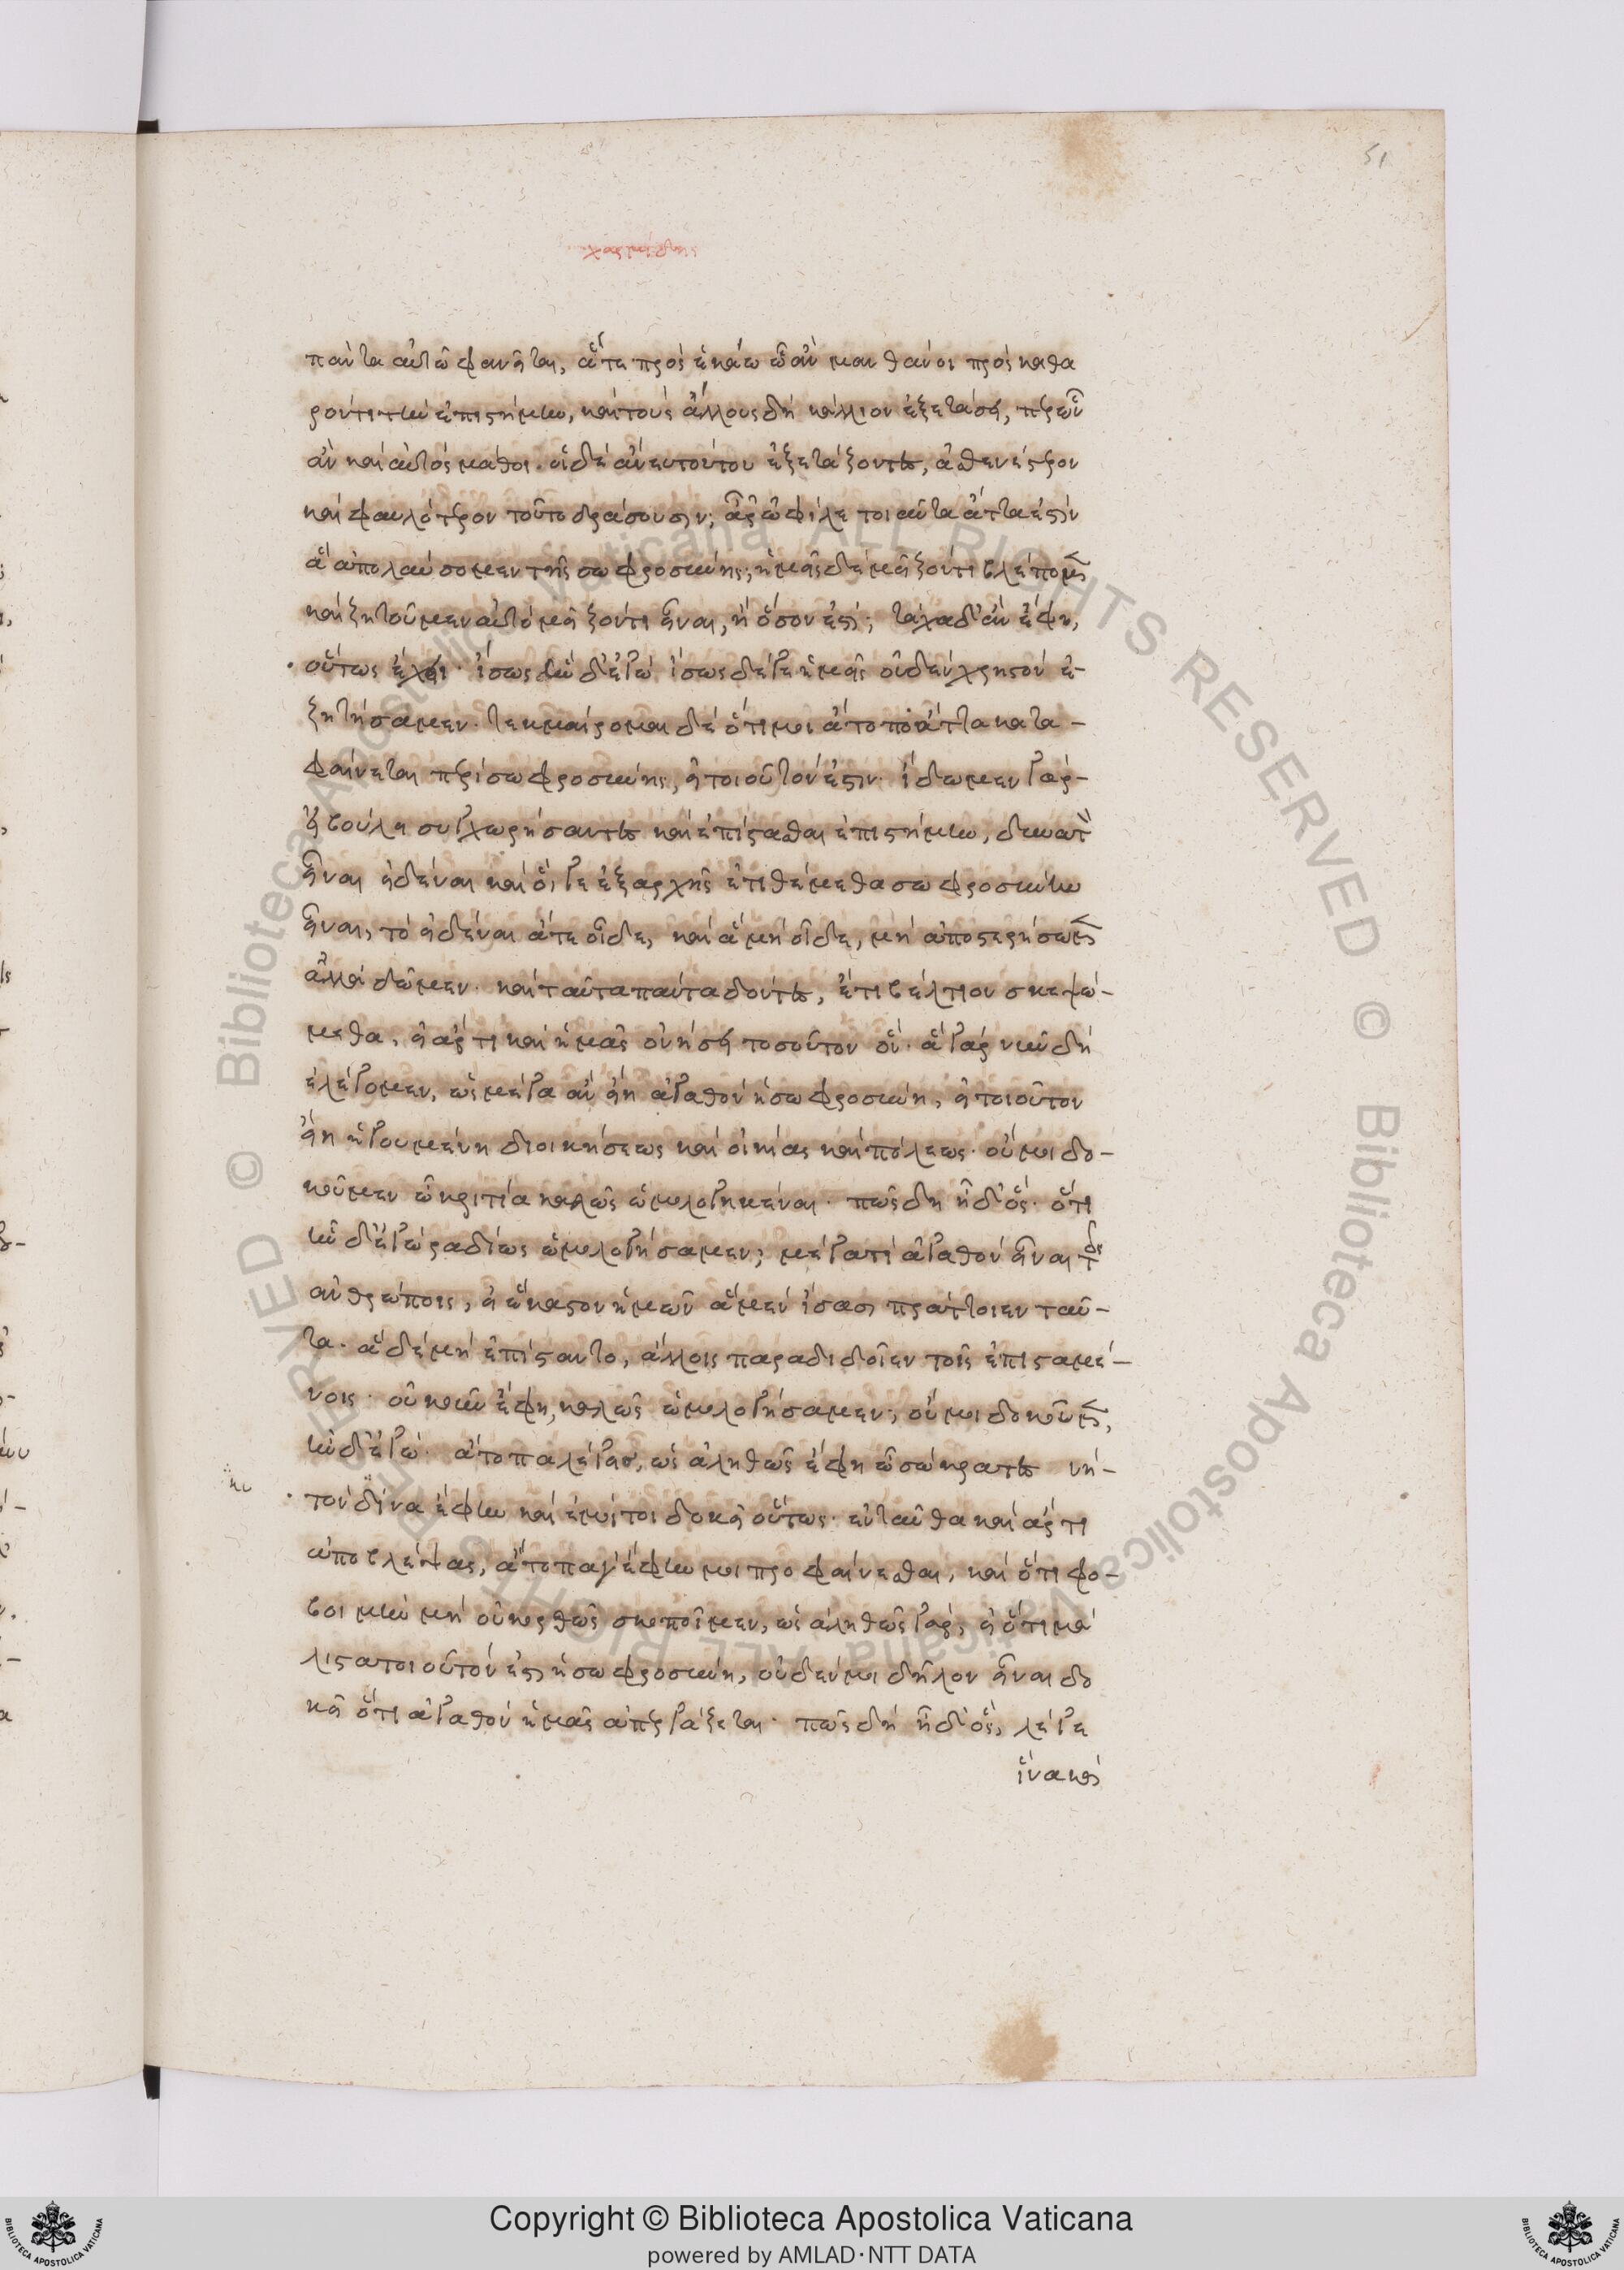 51
χαρμίδης
πάντα αὐτῶ φανεῖται, ἅτε πρὸς ἑκάστω ὧ ἂν μανθάνοι προσκαθο
ρῶντι τὴν ἐπιστήμην, καὶ τοὺς ἄλλους δὴ κάλλιον ἐξετάσει, περὶ ὧν
ἂν καὶ αὐτὸς μάθοι. οἱ δὲ ἄνευ τούτου ἐξετάζοντες, ἀσθενέστερον
καὶ φαυλότερον τοῦτο δράσουσιν; ἆρ' ὦ φίλε τοιαῦτα ἄττα ἐστὶν
ἃ ἀπολαύσομεν τῆς σωφροσύνης; ἡμεῖς δὲ μεῖζόν τι βλέπομεν
καὶ ζητοῦμεν αὐτὸ μεῖζόν τι εἶναι, ἢ ὅσον ἐστί; τάχα δ' ἂν ἔφη,
οὕτως ἔχοι. ἴσως ἦν δ' ἐγώ ἴσως δέ γε ἡμεῖς οὐδὲν χρηστὸν ἐ-
ζητήσαμεν. τεκμαίρομαι δὲ ὅτι μοι ἄτοπ' ἄττα κατα-
φαίνεται περὶ σωφροσύνης, εἰ τοιοῦτόν ἐστιν. ἴδωμεν γὰρ-
εἰ βούλει συγχωρήσαντες καὶ ἐπίστασθαι ἐπιστήμην, δυνατὸν
εἶναι εἰδέναι καὶ ὅ, γε ἐξαρχῆς ἐτιθέμεθα σωφροσύνην
εἶναι, τὸ εἰδέναι ἅτε οἶδε, καὶ ἃ μὴ οἶδε, μὴ ἀποστερήσωμεν
ἀλλὰ δῶμεν. καὶ ταῦτα πάντα δόντες, ἔτι βέλτιον σκεψώ-
μεθα, εἰ ἄρ τι καὶ ἡμᾶς ὀνήσει τοσοῦτον ὄν. ἃ γὰρ νῦν δὴ
ἐλέγομεν, ὡς μέγα ἂν εἴη ἀγαθὸν ἡ σωφροσύνη, εἰ τοιοῦτον
εἴη ἡγουμένη διοικήσεως καὶ οἰκίας καὶ πόλεως. οὔ μοι δο-
κοῦμεν ὦ κριτία καλῶς ὡμολογηκέναι. πῶς δὴ ἦ δ' ὅς. ὅτι
ἦν δ' ἐγὼ ῥαδίως ὡμολογήσαμεν; μέγα τί ἀγαθὸν εἶναι τοῖς
ἀνθρώποις, εἰ ἕκαστον ἡμῶν ἃ μὲν ἴσασι πράττοιεν ταῦ-
τα. ἃ δὲ μὴ ἐπίσταντο, ἄλλοις παραδιδοῖεν τοῖς ἐπισταμέ-
νοις. οὐκ οὖν ἔφη, καλῶς ὡμολογήσαμεν; οὔ μοι δοκοῦμεν,
ἦν δ' ἐγώ. ἄτοπα λέγεις, ὡς ἀληθῶς ἔφη ὦ σώκρατες νὴ-
τὸν κύνα ἔφην καὶ ἐμοί τοι δοκεῖ οὕτως. ἐνταῦθα καὶ ἄρτι
ἀποβλέψας, ἄτοπα γ' ἔφην μοι προφαίνεσθαι, καὶ ὅτι φο-
βοίμην μὴ οὐκ ὀρθῶς σκοποῖμεν, ὡς ἀληθῶς γὰρ, εἰ ὅτι μά
λιστα τοιοῦτόν ἐστι ἡ σωφροσύνη, οὐδέν μοι δῆλον εἶναι δο
κεῖ ὅτι ἀγαθὸν ἡμᾶς ἀπεργάζεται. πῶς δὴ ἦ δ' ὅς, λέγε
ἵνα καὶ
Copyright © Biblioteca Apostolica Vaticana
powered by AMLAD·NTT DATA
© Biblioteca Apostolica Vaticana ALL RIGHTS RESERVED © Biblioteca Apostolica Vaticana ALL RIGHTS RESERVED
BIBLIOTECA APOSTOLICA VATICANA
BIBLIOTECA APOSTOLICA VATICANA